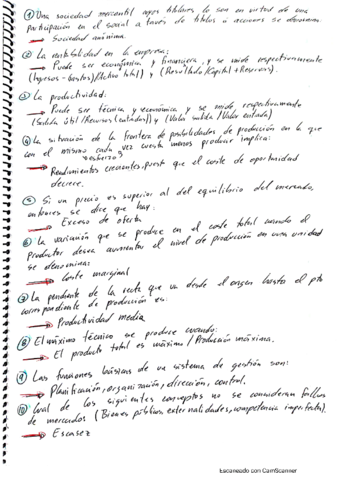 ① Una sociedad mercantil cuyos titulares lo son en virtud de una
participación en el social a través de títulos o acciones se denomina:
Sociedad anónima.
② La rentabilidad en la empresa:
Puede ser económica y financiera, y se mide respectivamente
(Ingresos - Gastos)/(Activo total) y (Resultado/Capital + Reservas).
③ La productividad:
Puede ser técnica y económica, y se mide respectivamente
(Salida útil/Recursos (entradas)) y (Valor salida/Valor entrada)
④ La situación de la frontera de posibilidades de producción en la que
con el mismo esfuerzo cada vez cuesta menos producir implica:
Rendimientos crecientes, puesto que el coste de oportunidad
decrece.
⑤ Si un precio es superior al del equilibrio del mercado,
entonces se dice que hay:
Exceso de oferta
⑥ La variación que se produce en el coste total cuando el
productor desea aumentar el nivel de producción en una unidad
se denomina:
Coste marginal
⑦ La pendiente de la recta que va desde el origen hasta el pto
correspondiente de producción es:
Productividad media
⑧ El máximo técnico se produce cuando:
El producto total es máximo/Producción máxima.
⑨ Las funciones básicas de un sistema de gestión son:
Planificación, organización, dirección, control.
⑩ Cual de los siguientes conceptos no se consideran fallos
de mercados (Bienes públicos, externalidades, competencia imperfecta).
Escasez
Escaneado con CamScanner